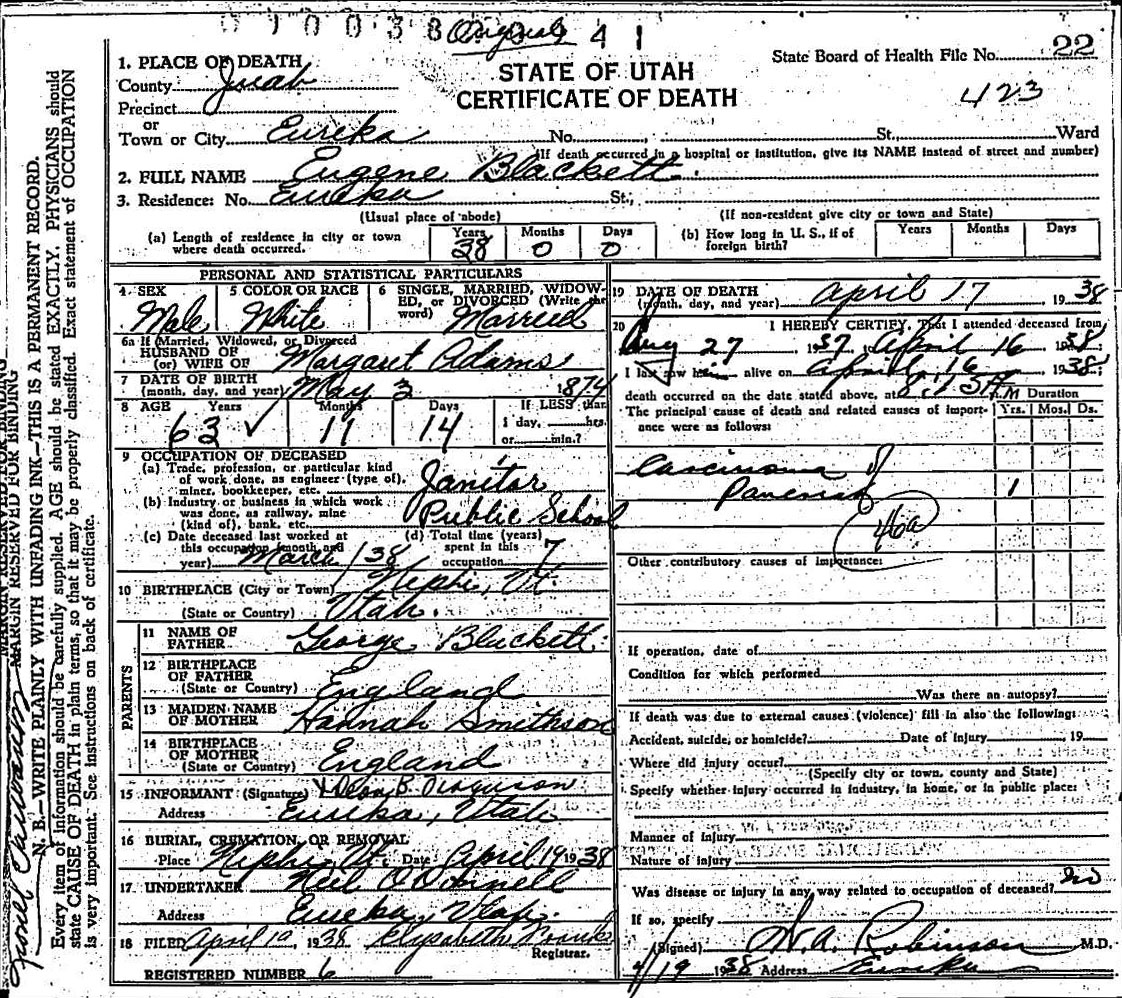 Original 41
State Board of Health File No. 22
STATE OF UTAH
CERTIFICATE OF DEATH
423
1. PLACE OF DEATH
County Juab
Precinct
or
Town or City Eureka No. St. Ward
(If death occurred in a hospital or institution, give its NAME instead of street and number)
2. FULL NAME Eugene Blackett
3. Residence: No. Eureka St.,
(Usual place of abode) (If non-resident give city or town and State)
(a) Length of residence in city or town where death occurred. Years 38 Months 0 Days 0
(b) How long in U. S., if of foreign birth? Years Months Days
PERSONAL AND STATISTICAL PARTICULARS
4 SEX Male
5 COLOR OR RACE White
6 SINGLE, MARRIED, WIDOWED, or DIVORCED (Write the word) Married
6a If Married, Widowed, or Divorced
HUSBAND OF
(or) WIFE OF Margaret Adams
7 DATE OF BIRTH
(month, day, and year) May 3 1874
8 AGE Years 63 Months 11 Days 14 If LESS than
1 day, hrs.
or min.?
9 OCCUPATION OF DECEASED
(a) Trade, profession, or particular kind
of work done, as engineer (type of),
miner, bookkeeper, etc. Janitor
(b) Industry or business in which work
was done, as railway, mine
(kind of), bank, etc. Public School
(c) Date deceased last worked at
this occupation (month and
year) March / 38
(d) Total time (years)
spent in this
occupation 7
10 BIRTHPLACE (City or Town) Nephi, Ut.
(State or Country) Utah.
PARENTS
11 NAME OF
FATHER George Blackett
12 BIRTHPLACE
OF FATHER
(State or Country) England
13 MAIDEN NAME
OF MOTHER Hannah Smithson
14 BIRTHPLACE
OF MOTHER
(State or Country) England
15 INFORMANT (Signature) B.
Address Eureka, Utah
16 BURIAL, CREMATION, OR REMOVAL
Place Nephi Ut. Date April 19 1938
17 UNDERTAKER Neil O'Donnell
Address Eureka, Utah.
18 FILED April 1938 Elizabeth
Registrar.
REGISTERED NUMBER 6
19 DATE OF DEATH
(month, day, and year) April 17, 1938
20 I HEREBY CERTIFY, That I attended deceased from
Aug 27 1937, April 16 1938
I last saw him alive on April 16 1938;
death occurred on the date stated above, at 8:15 A.M
The principal cause of death and related causes of importance were as follows:
Duration
Yrs. Mos. Ds.
Carcinoma of
Pancreas 1
46a
Other contributory causes of importance:
If operation, date of
Condition for which performed
Was there an autopsy?
If death was due to external causes (violence) fill in also the following:
Accident, suicide, or homicide? Date of injury , 19
Where did injury occur?
(Specify city or town, county and State)
Specify whether injury occurred in industry, in home, or in public place:
Manner of injury
Nature of injury
Was disease or injury in any way related to occupation of deceased? no
If so, specify
(Signed) W. A. Robinson M.D.
4/19 1938 Address Eureka
MARGIN RESERVED FOR BINDING
N. B.—WRITE PLAINLY WITH UNFADING INK—THIS IS A PERMANENT RECORD.
Every item of information should be carefully supplied. AGE should be stated EXACTLY. PHYSICIANS should
state CAUSE OF DEATH in plain terms, so that it may be properly classified. Exact statement of OCCUPATION
is very important. See instructions on back of certificate.